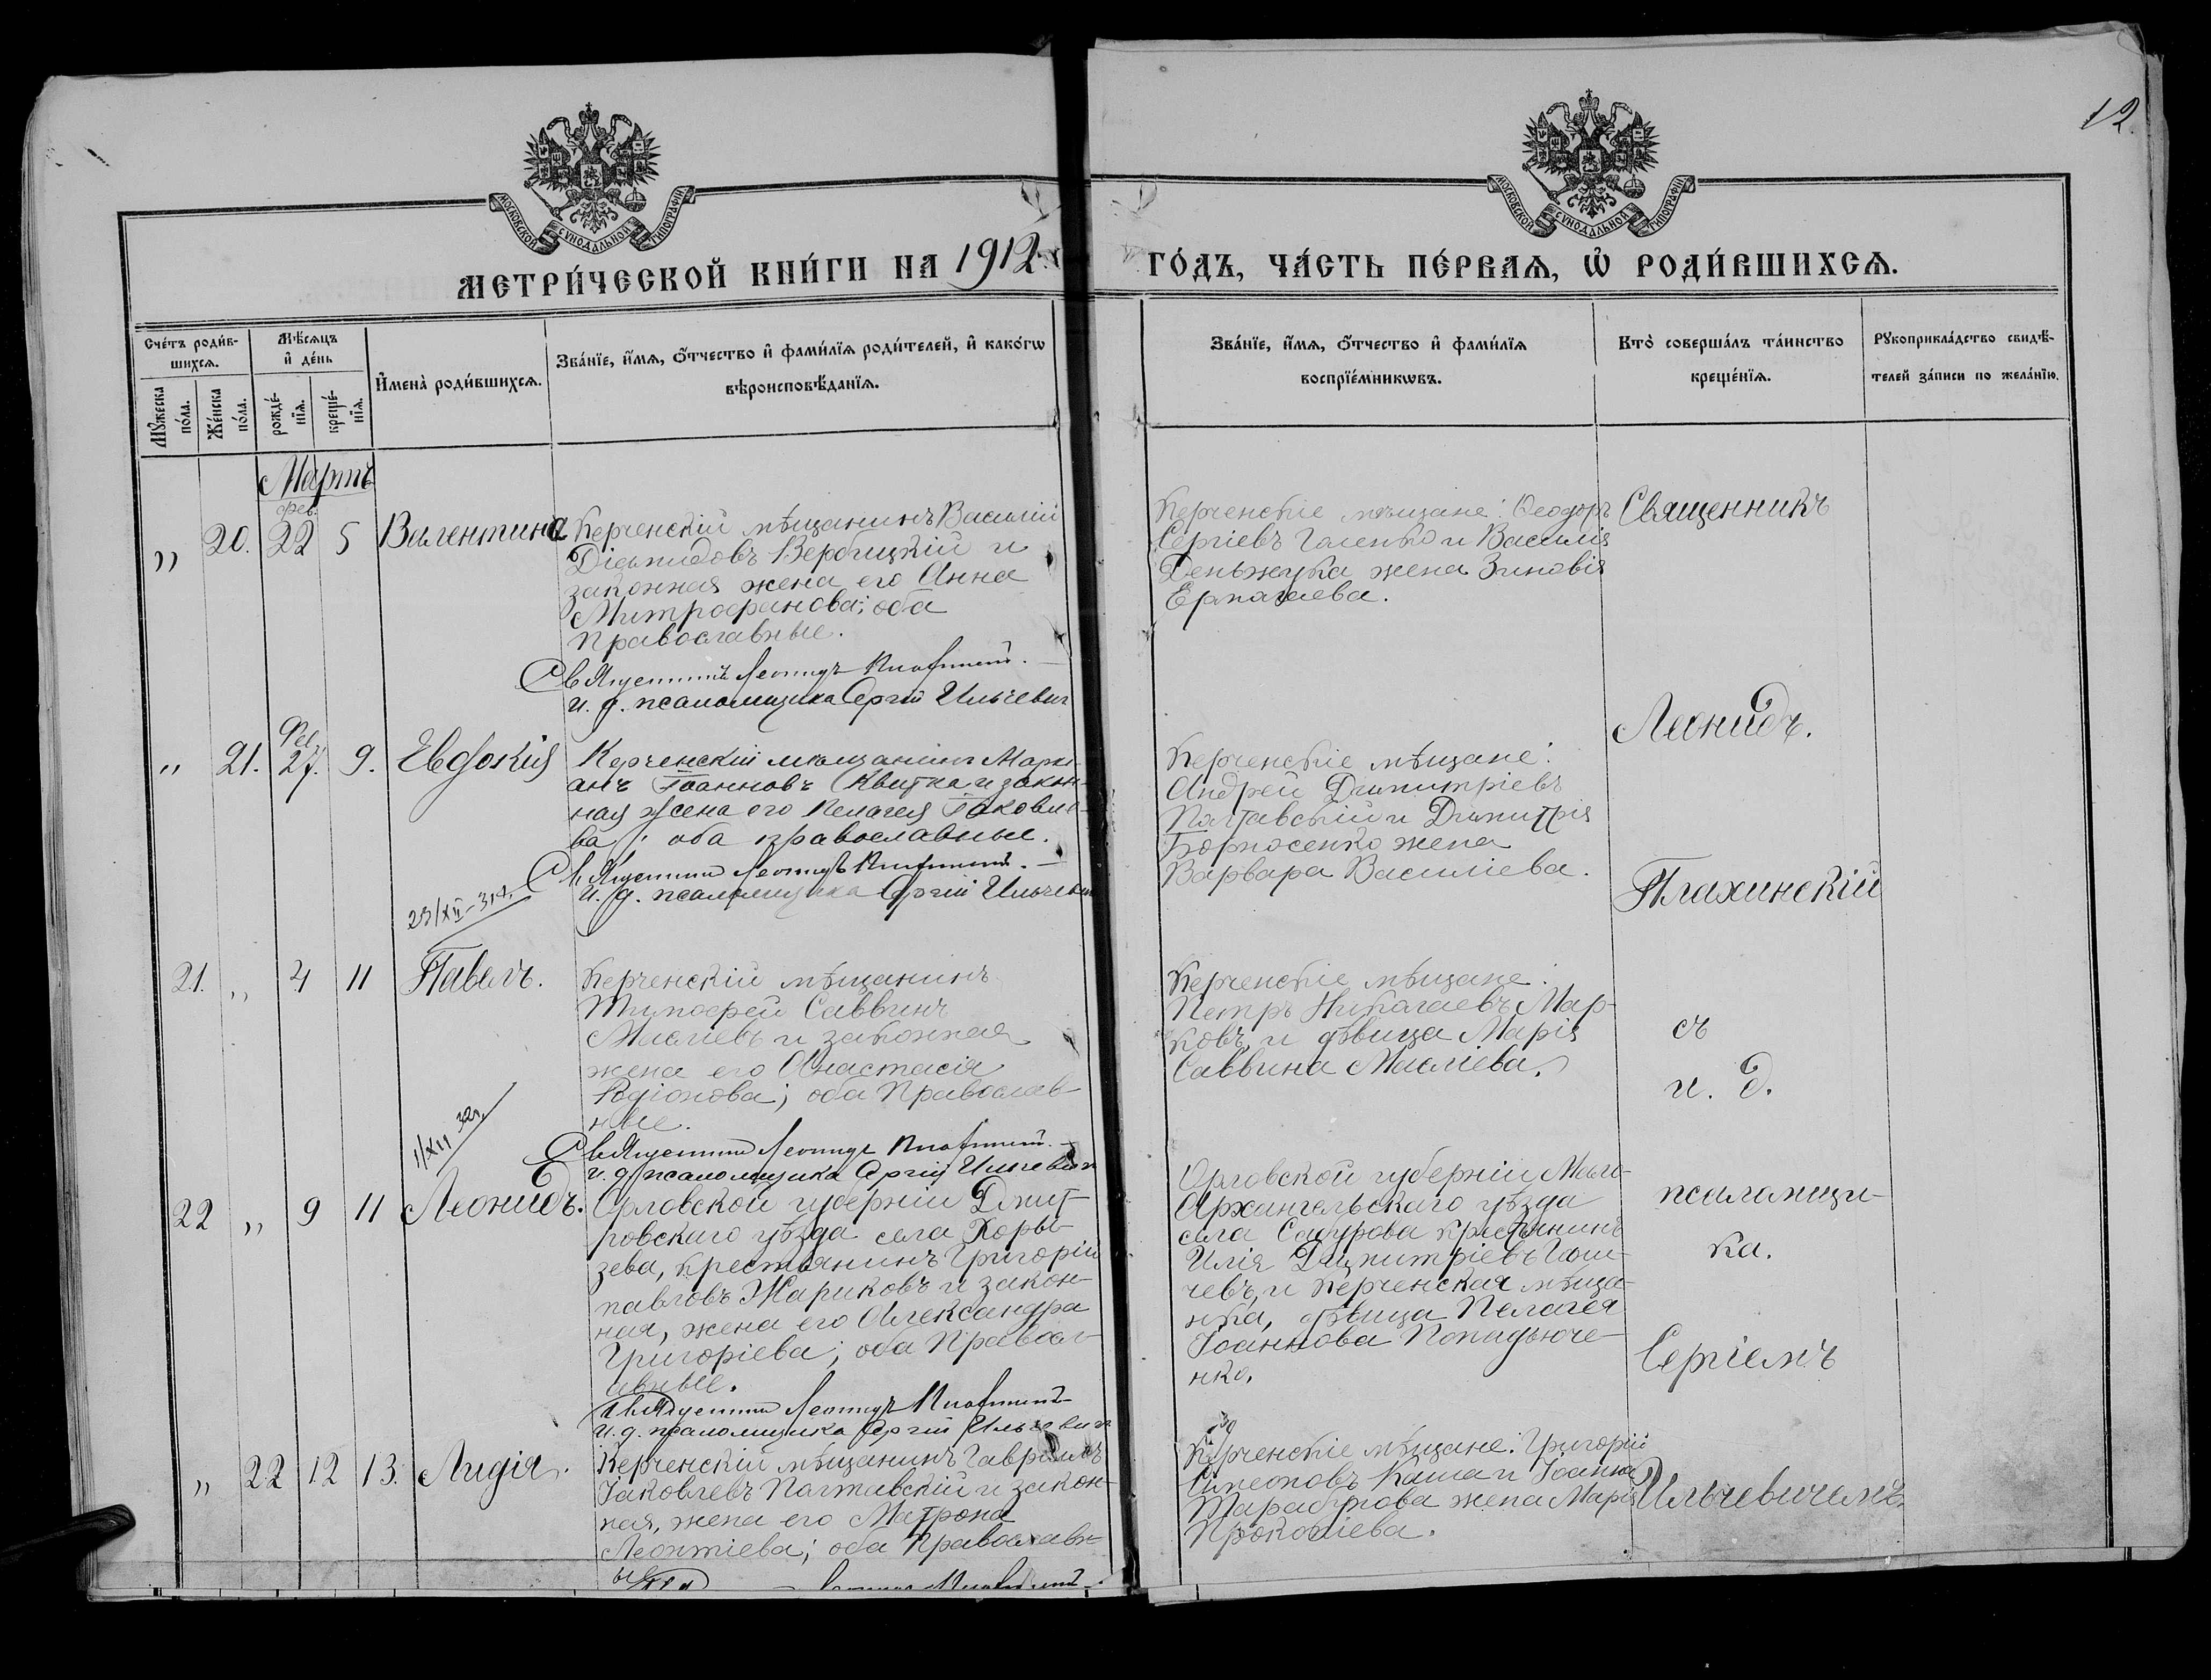 12.
МОСКОВСКОЙ СѴНОДАЛЬНОЙ ТИПОГРАФІИ
МОСКОВСКОЙ СѴНОДАЛЬНОЙ ТИПОГРАФІИ
МЕТРИ́ЧЕСКОЙ КНИ́ГИ НА 1912
ГО́ДЪ, ЧА́СТЬ ПЕ́РВАѦ, Ѡ҆ РОДИ́ВШИХСѦ.
Сче́тъ роди́в-
шихсѧ.
Мѣ́сѧцъ
и҆ де́нь
Мꙋ́жеска
по́ла.
Же́нска
по́ла.
рожде́-
нїѧ.
креще́-
нїѧ.
И҆мена̀ роди́вшихсѧ.
Зва́нїе, и҆́мѧ, ѻ҆́тчество и҆ фами́лїѧ роди́телей, и҆ како́гѡ
вѣроисповѣ́данїѧ.
Зва́нїе, и҆́мѧ, ѻ҆́тчество и҆ фами́лїѧ
воспрїе́мникѡвъ.
Кто̀ соверша́лъ та́инство
креще́нїѧ.
Рꙋкоприкла́дство свидѣ́-
телей за́писи по жела́нїю.
Мартъ
фев.
" 20. 22 5 Валентина
Керченскій мѣщанинъ Василій
Діомидовъ Вербицкій и
законная жена его Анна
Митрофанова; оба
православные.
Священникъ Леонидъ
и. д. псаломщика Сергій Ильчевич
Керченскіе мѣщане: Ѳеодоръ
Сергіевъ Галенко и Василія
жена Зиновія
Ермолаева.
Священникъ
Леонидъ.
Плахинскій
съ
и. д.
псаломщи-
ка.
Сергіемъ
Ильчевичемъ
Фев.
" 21. 27. 9. Евдокія
Керченскій мѣщанинъ Марки-
анъ Іоанновъ Квитка и закон-
ная жена его Пелагея Іаковле-
ва; оба православные.
Священникъ Леонидъ
и. д. псаломщика Сергій Ильчевич
Керченскіе мѣщане:
Андрей Димитріевъ
Полтавскій и Димитрія
Борносенко жена
Варвара Василіева.
23/XII-31г.
21. " 4 11 Павелъ.
Керченскій мѣщанинъ
Тимоѳей Саввинъ
Масліевъ и законная
жена его Анастасія
Родіонова; оба православ-
ные.
Священникъ Леонидъ
и. д. псаломщика Сергій Ильчевич
Керченскіе мѣщане:
Петръ Николаевъ Мар-
ковъ и дѣвица Марія
Саввина Масліева.
1/XII 32г.
22 " 9 11 Леонидъ.
Орловской губерніи Дмит-
ровскаго уѣзда села Хоры-
зева, крестьянинъ Григорій
Павловъ Жариковъ и закон-
ная, жена его Александра
Григоріева; оба правосл-
авные.
Священникъ Леонидъ
и. д. псаломщика Сергій Ильчевич
Орловской губерніи Мало-
Архангельскаго уѣзда
села Сабурова крестьянинъ
Илія Димитріевъ
чевъ, и керченская мѣща-
нка, дѣвица Пелагея
Іоаннова Попадюче-
нко.
" 22 12 13. Лидія.
Керченскій мѣщанинъ Гавріилъ
Іаковлевъ Полтавскій и закон-
ная, жена его Матрона
Леонтіева; оба православн-
ые
Керченскіе мѣщане: Григорій
Симеоновъ Каша и Іоанна
жена Марія
Прокопіева.